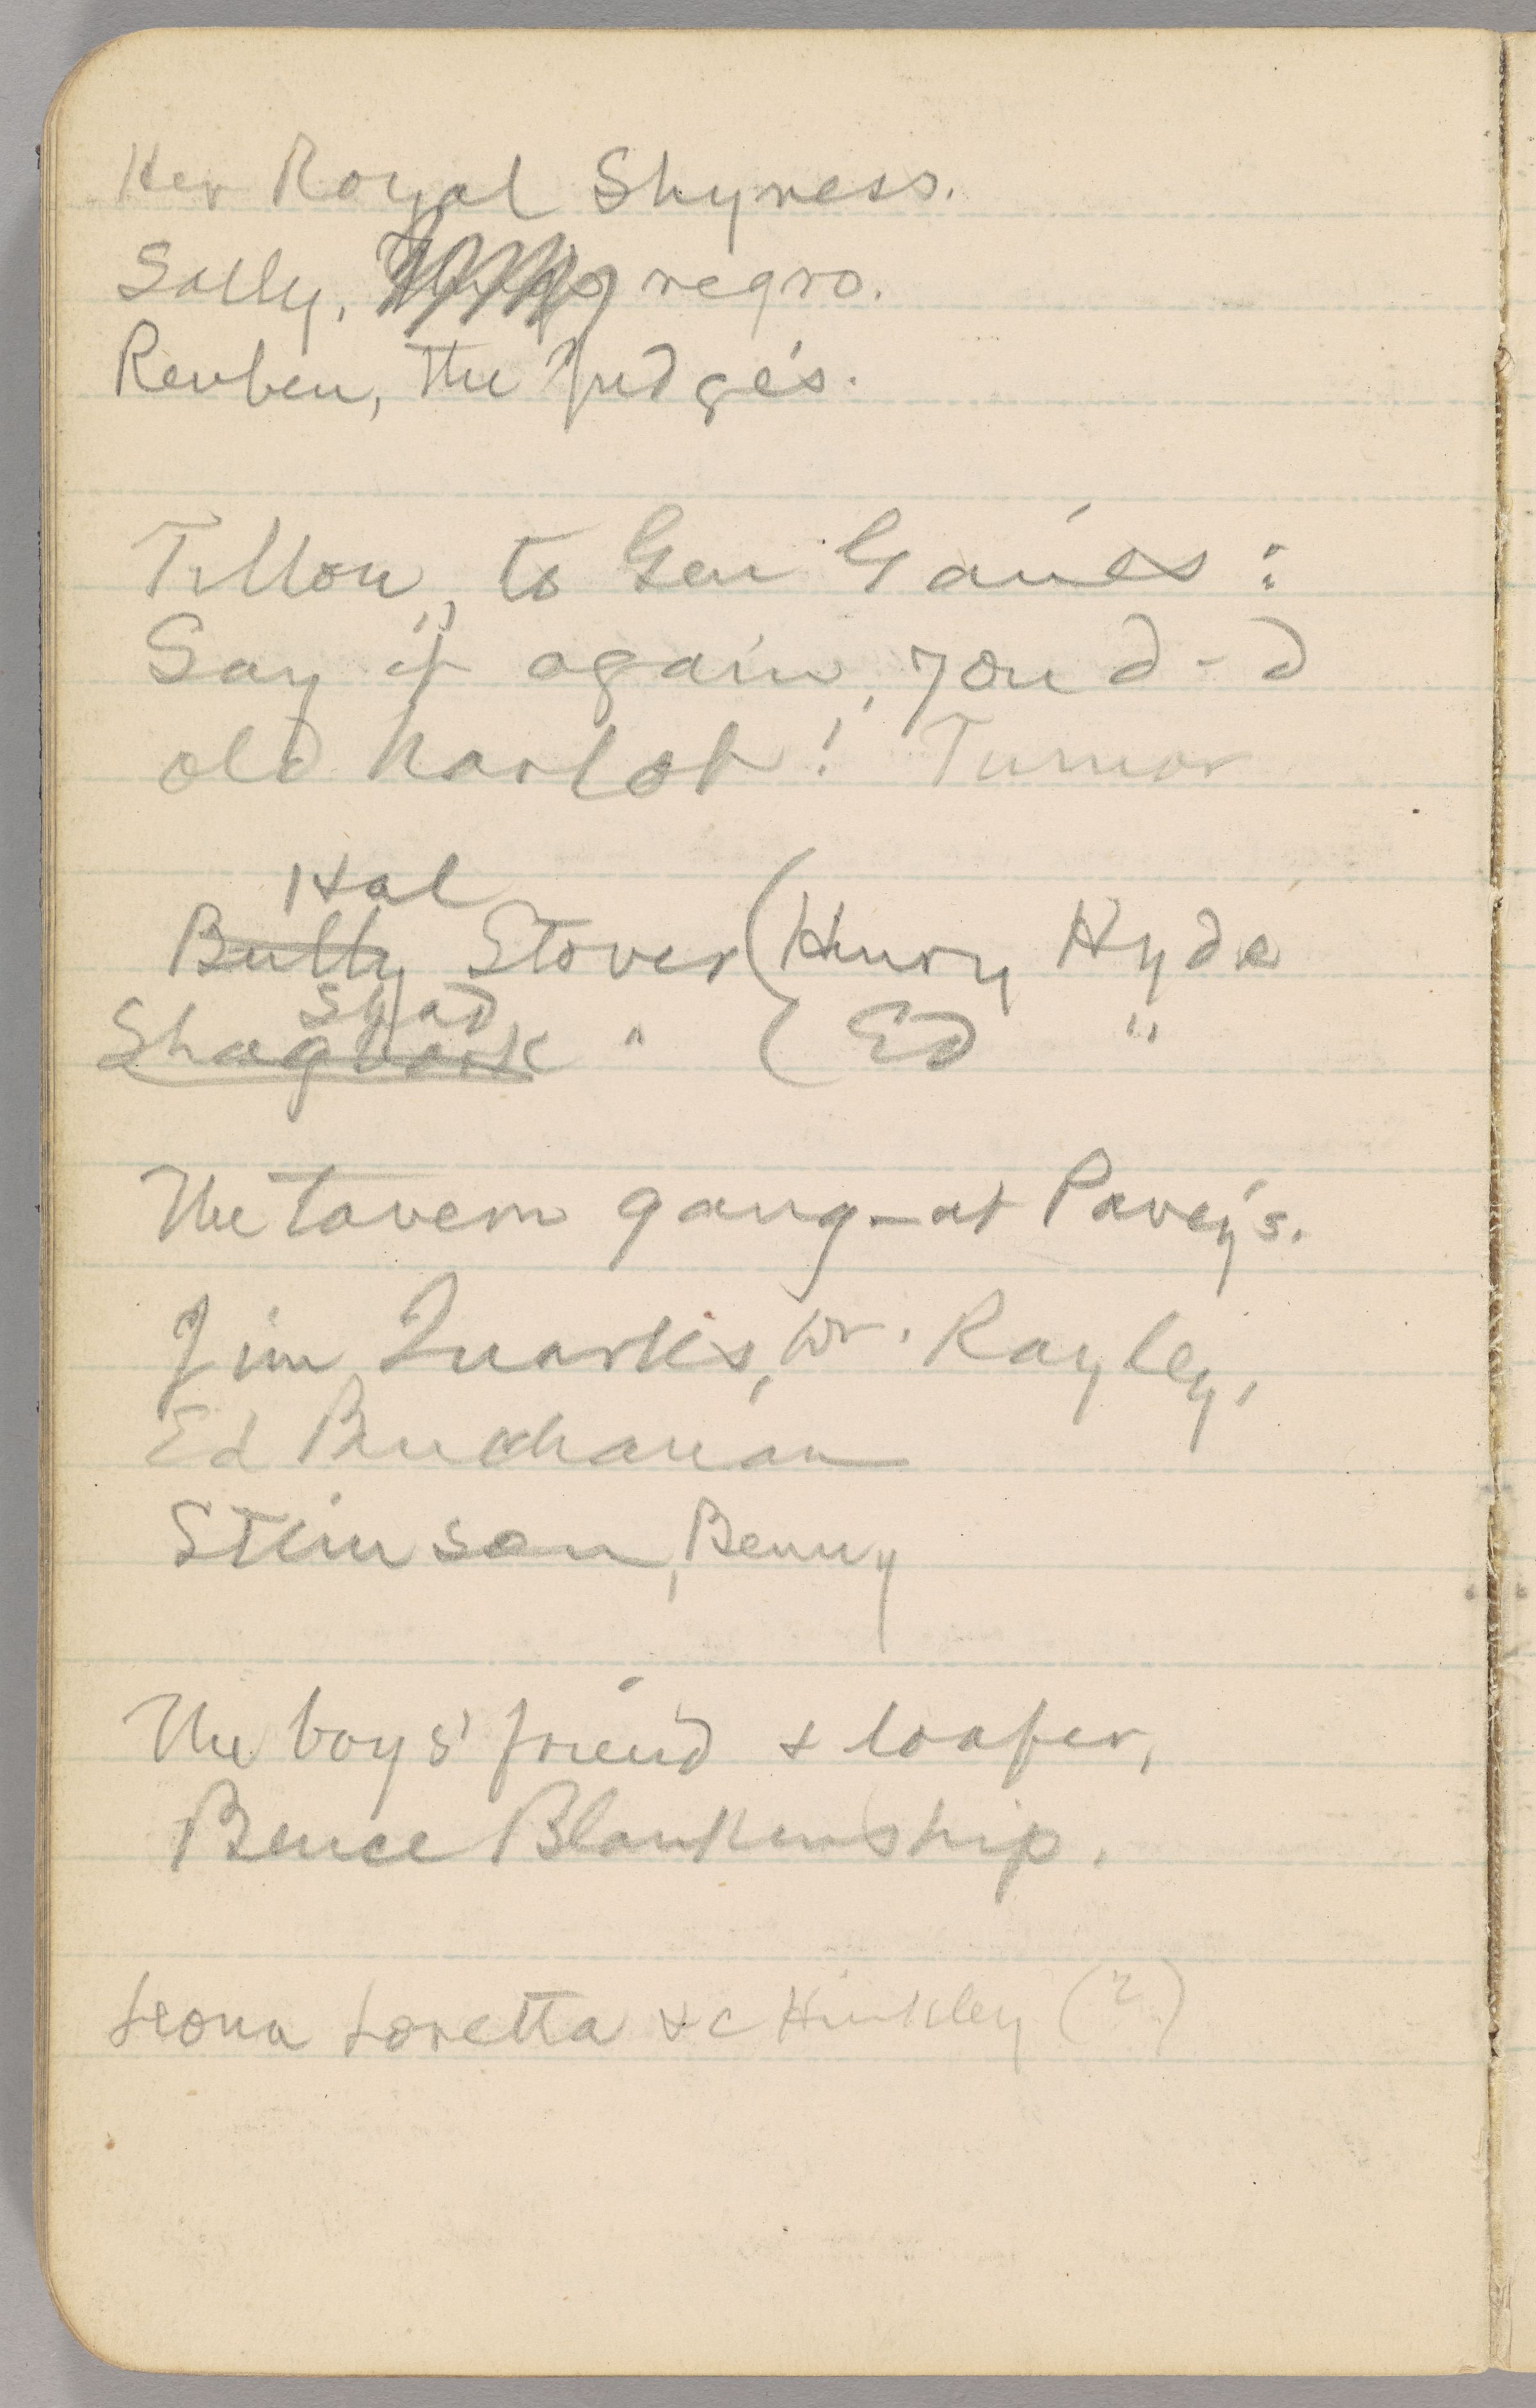 Her Royal Shyness.
Sally, negro.
Reuben, the Judge's.
Tillou, to Gen Gaines:
Say it again, you d-d
old harlot! Turner
Hal
Bully Stover (Henry Hyde
Shad
Shagbark " ( Ed "
The tavern gang—at Pavey's.
Jim Quarles, Wr. Rayley,
Ed Buchanan
Stimson, Benny
The boys' friend & loafer,
Bence Blankenship.
Leona Loretta &c Hinkley (?)